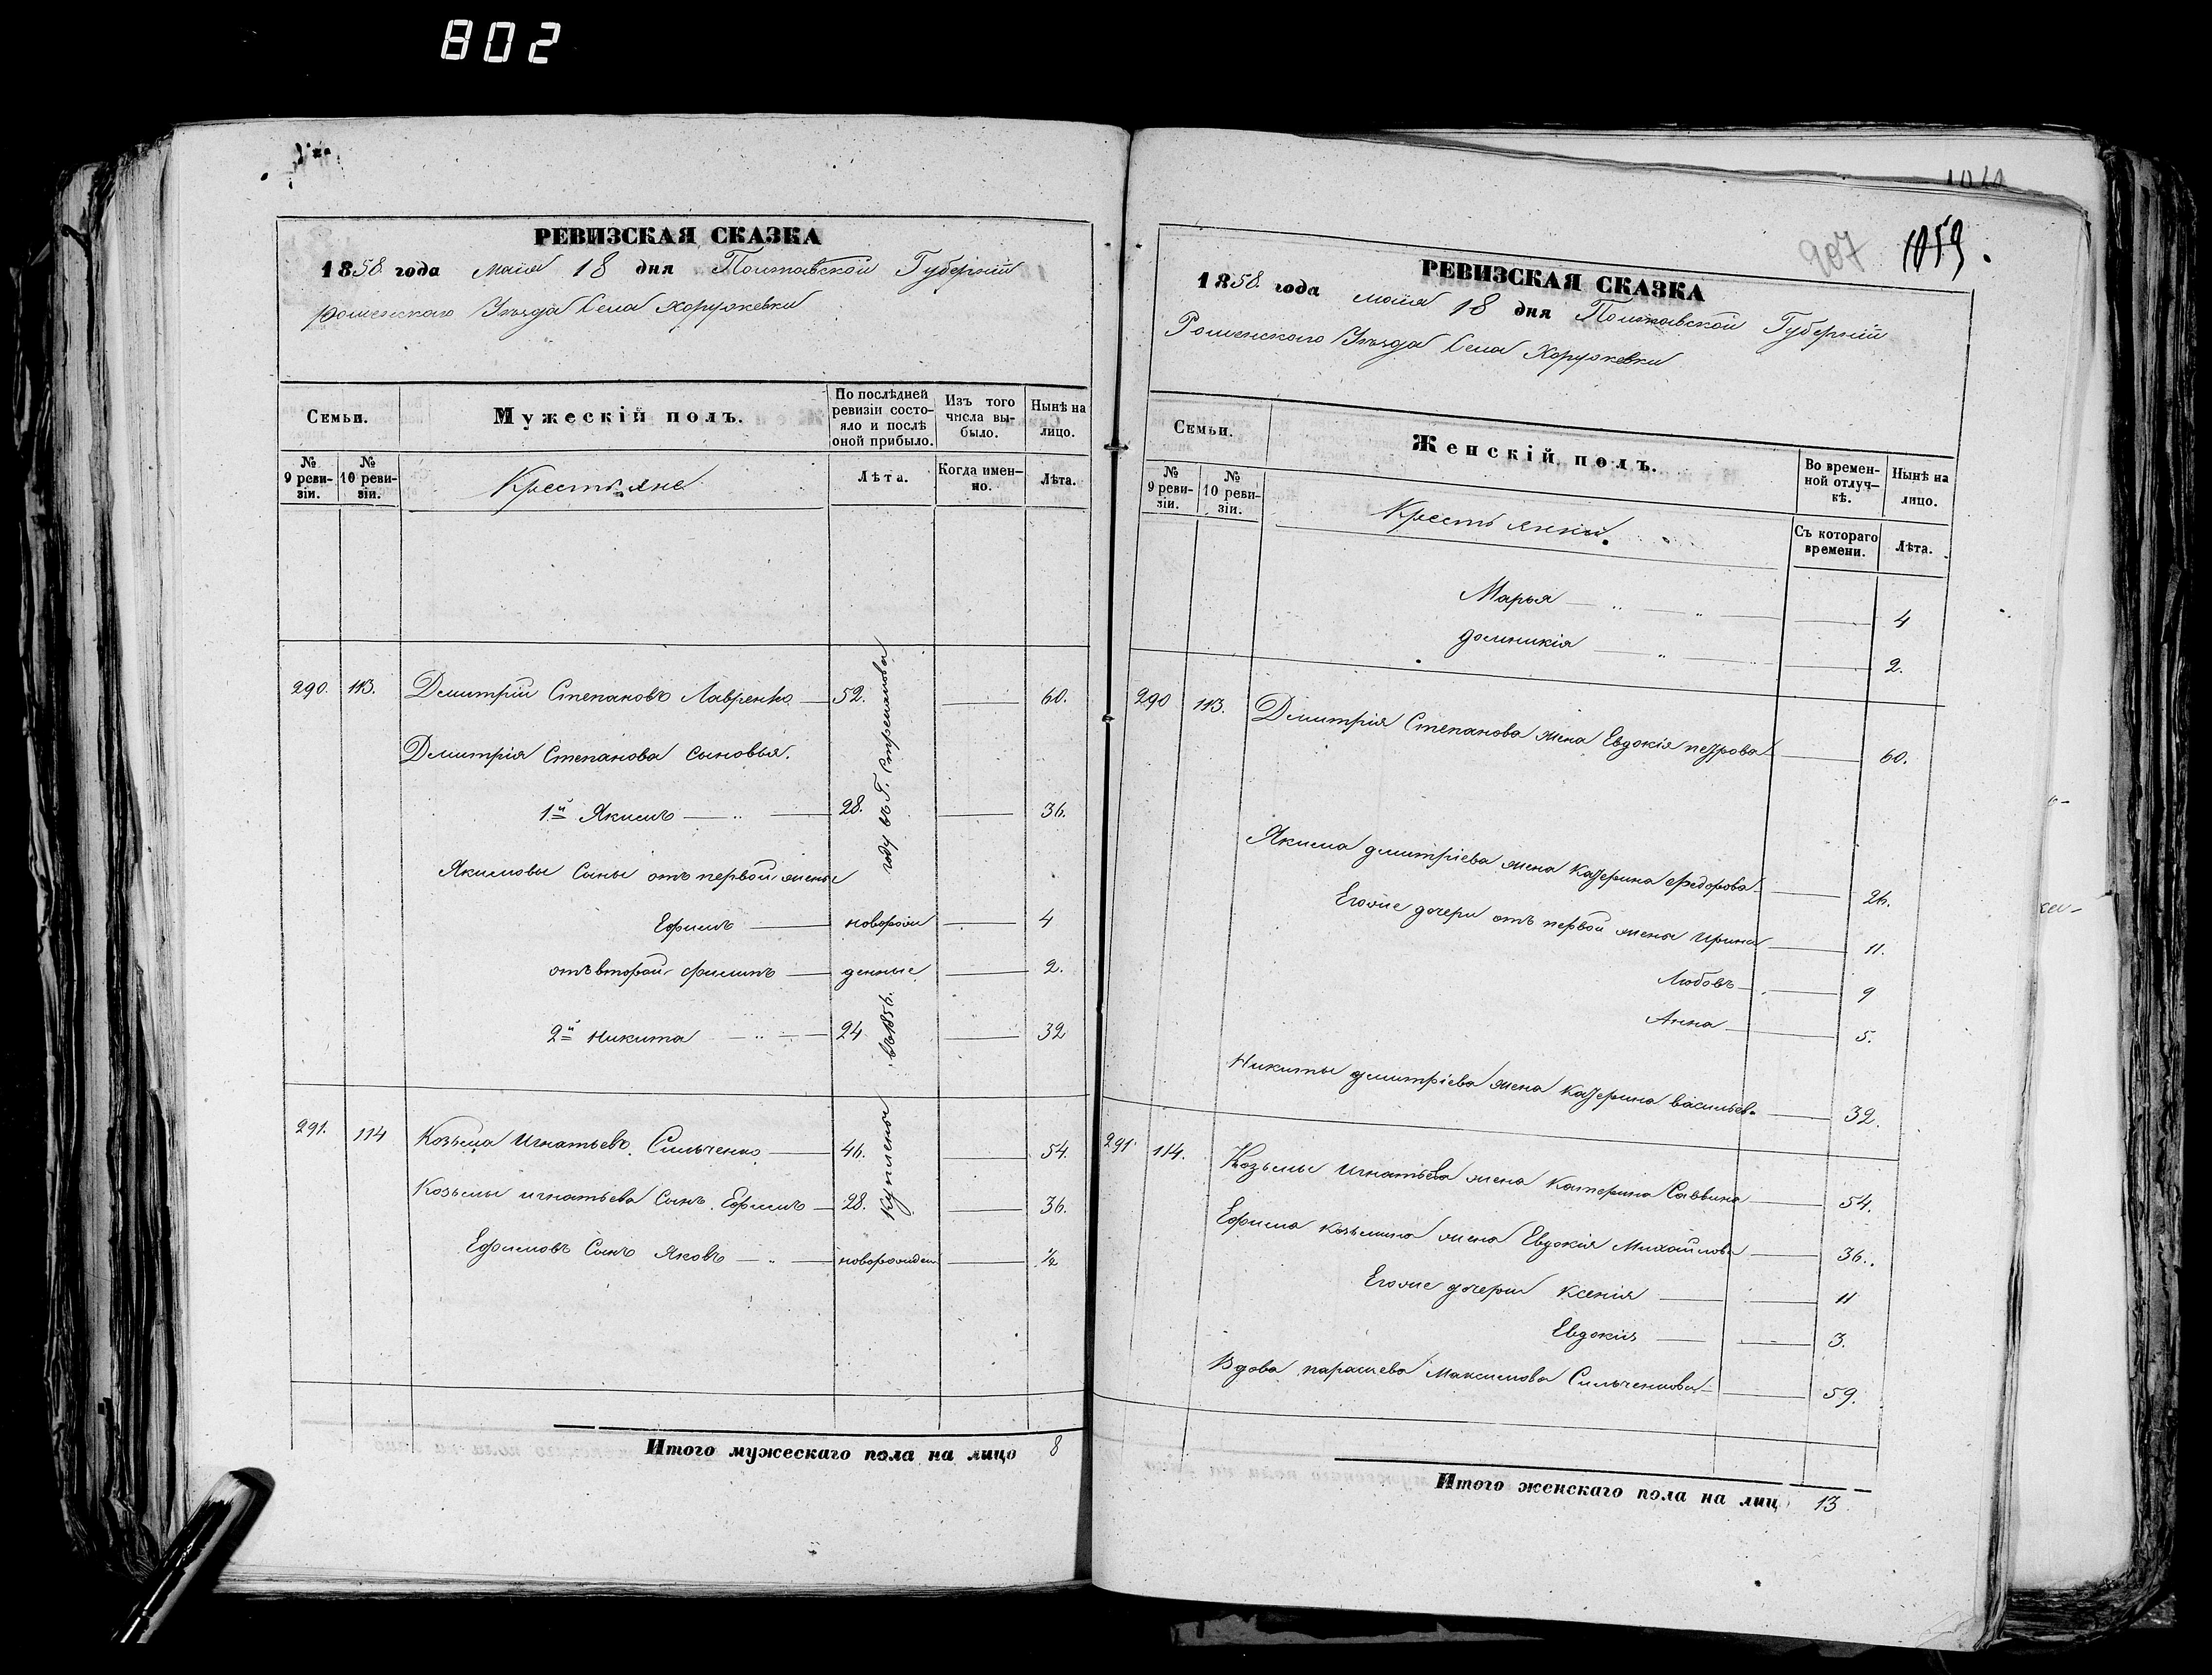 802
РЕВИЗСКАЯ СКАЗКА
1858 года маія 18 дня Полтавской Губерніи
роменскаго Уѣзда Села Хоружевки
Семьи.
Мужескій полъ.
По послѣдней ревизіи состо-
яло и послѣ
оной прибыло.
Изъ того
числа вы-
было.
Нынѣ на
лицо.
№ 9 реви-
зіи.
№ 10 реви-
зіи.
Крестьяне
Лѣта.
Когда имен-
но.
Лѣта.
290. 113. Дмитрій Степановъ Лавренко 52. 60.
Дмитрія Степанова сыновья.
1й Якимъ — „ — 28. 36.
Якимовы Сыны отъ первой жены
Ефимъ — новорож — 4
отъ второй Филипъ — денные — 2.
2й Никита — „ — 24 32
291. 114 Козьма Игнатьевъ Сильченко 46. 54.
Козьмы игнатьева Сынъ Ефимъ 28. 36.
Ефимовъ Сынъ Яковъ — „ — новорожден ½
Куплены въ 1856. году въ Г. Стремоухова
Итого мужескаго пола на лицо 8
1059.
907
РЕВИЗСКАЯ СКАЗКА
1858. года маія 18 дня Полтавской Губерніи
Роменскаго Уѣзда Села Хоружевки
Семьи.
Женскій полъ.
Во времен-
ной отлуч-
кѣ.
Нынѣ на
лицо.
№ 9 реви-
зіи.
№ 10 реви-
зіи.
Крестьянки.
Съ котораго
времени.
Лѣта.
Марья — „ — „ — 4
Домникія — „ — 2.
290 113. Дмитрія Степанова жена Евдокія петрова 60.
Якима дмитріева жена Катерина Федорова 26.
Егоже дочери отъ первой жены Ирина 11.
Любовь 9
Анна 5.
Никиты дмитріева жена Катерина васильев 32.
291 114. Козьмы Игнатьева жена Катерина Саввина 54.
Ефима козьмина жена Евдокія Михайлова 36.
Егоже дочери Ксенія 11
Евдокія 3.
Вдова параскева Максимова Сильченкова 59.
Итого женскаго пола на лиц 13.